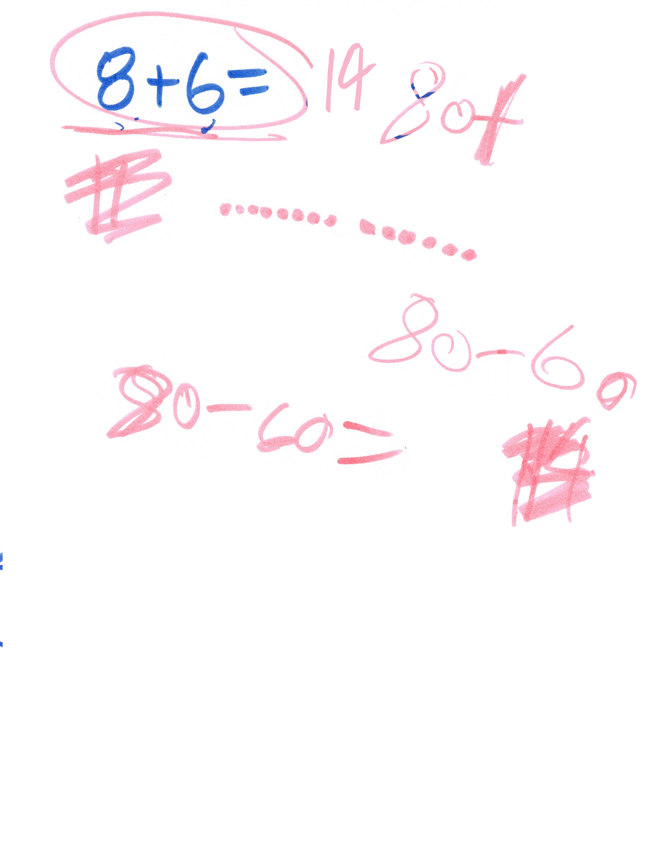 8+6= 14 80+
80-60
80-60=